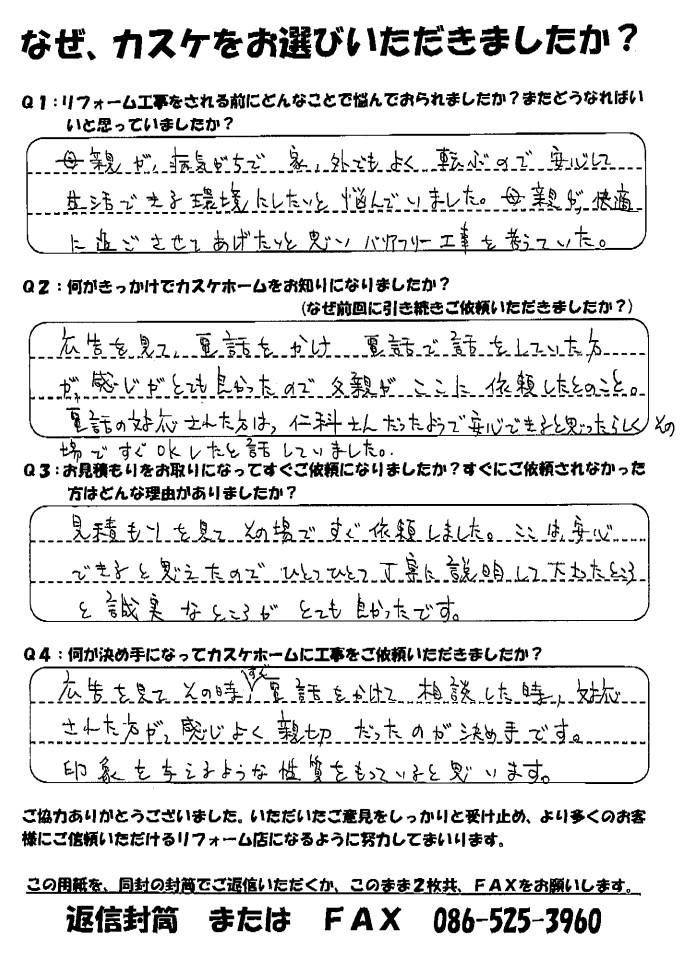 なぜ、カスケをお選びいただきましたか？
Q1：リフォーム工事をされる前にどんなことで悩んでおられましたか？またどうなればい
いと思っていましたか？
母親が、病気がちで 家、外でもよく 転ぶので 安心して
生活できる環境にしたいと悩んでいました。母親が、快適
に過ごさせてあげたいと思い バリアフリー工事を考えていた。
Q2：何がきっかけでカスケホームをお知りになりましたか？
（なぜ前回に引き続きご依頼いただきましたか？）
広告を見て、電話をかけ 電話で話をしていた方
が、感じがとても良かったので 父親が ここに 依頼したとのこと。
電話の対応された方は、仁科さんだったようで安心できると思ったらしく その
場ですぐOKしたと話していました。
Q3：お見積もりをお取りになってすぐご依頼になりましたか？すぐにご依頼されなかった
方はどんな理由がありましたか？
見積もりを見て その場ですぐ依頼しました。ここは、安心
できると思えたので ひとつひとつ丁寧に説明して
と誠実なところが とても良かったです。
Q4：何が決め手になってカスケホームに工事をご依頼いただきましたか？
広告を見て その時、すぐ電話をかけて 相談した時、対応
された方が、感じよく親切 だったのが決め手です。
印象を与えるような性質をもっていると思います。
ご協力ありがとうございました。いただいたご意見をしっかりと受け止め、より多くのお客
様にご信頼いただけるリフォーム店になるように努力してまいります。
この用紙を、同封の封筒でご返信いただくか、このまま2枚共、FAXをお願いします。
返信封筒 または FAX 086-525-3960